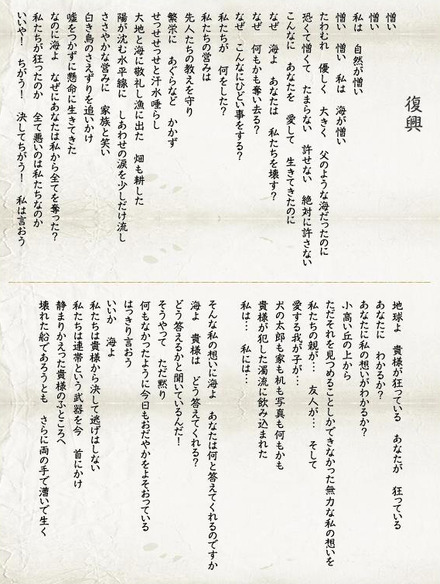 復興
憎い
憎い
私は 自然が憎い
憎い 憎い 私は 海が憎い
たわむれ 優しく 大きく 父のような海だったのに
恐くて憎くて たまらない 許せない 絶対に許さない
こんなに あなたを 愛して 生きてきたのに
なぜ 海よ あなたは 私たちを壊す?
なぜ 何もかも奪い去る?
なぜ こんなにひどい事をする?
私たちが 何をした?
私たちの営みは
先人たちの教えを守り
繁栄に あぐらなど かかず
せっせっせと汗水唾らし
大地と海に敬礼し漁に出た 畑も耕した
陽が沈む水平線に しあわせの涙を少しだけ流し
ささやかな営みに 家族と笑い
白き鳥のさえずりを追いかけ
嘘をつかずに懸命に生きてきた
なのに海よ なぜにあなたは私から全てを奪った?
私たちが狂ったのか 全て悪いのは私たちなのか
いいや! ちがう! 決してちがう! 私は言おう
地球よ 貴様が狂っている あなたが 狂っている
あなたに わかるか?
あなたに私の想いがわかるか?
小高い丘の上から
ただそれを見つめることしかできなかった無力な私の想いを
私たちの親が… 友人が… そして
愛する我が子が…
犬の太郎も家も机も写真も何もかも
貴様が犯した濁流に飲み込まれた
私は… 私には…
そんな私の想いに海よ あなたは何と答えてくれるのですか
海よ 貴様は どう答えてくれる?
どう答えるかと聞いているんだ!
そうやって ただ黙り
何もなかったように今日もおだやかをよそおっている
はっきり言おう
いいか 海よ
私たちは貴様から決して逃げはしない
私たちは連帯という武器を今 首にかけ
静まりかえった貴様のふところへ
壊れた船であろうとも さらに両の手で漕いで生く